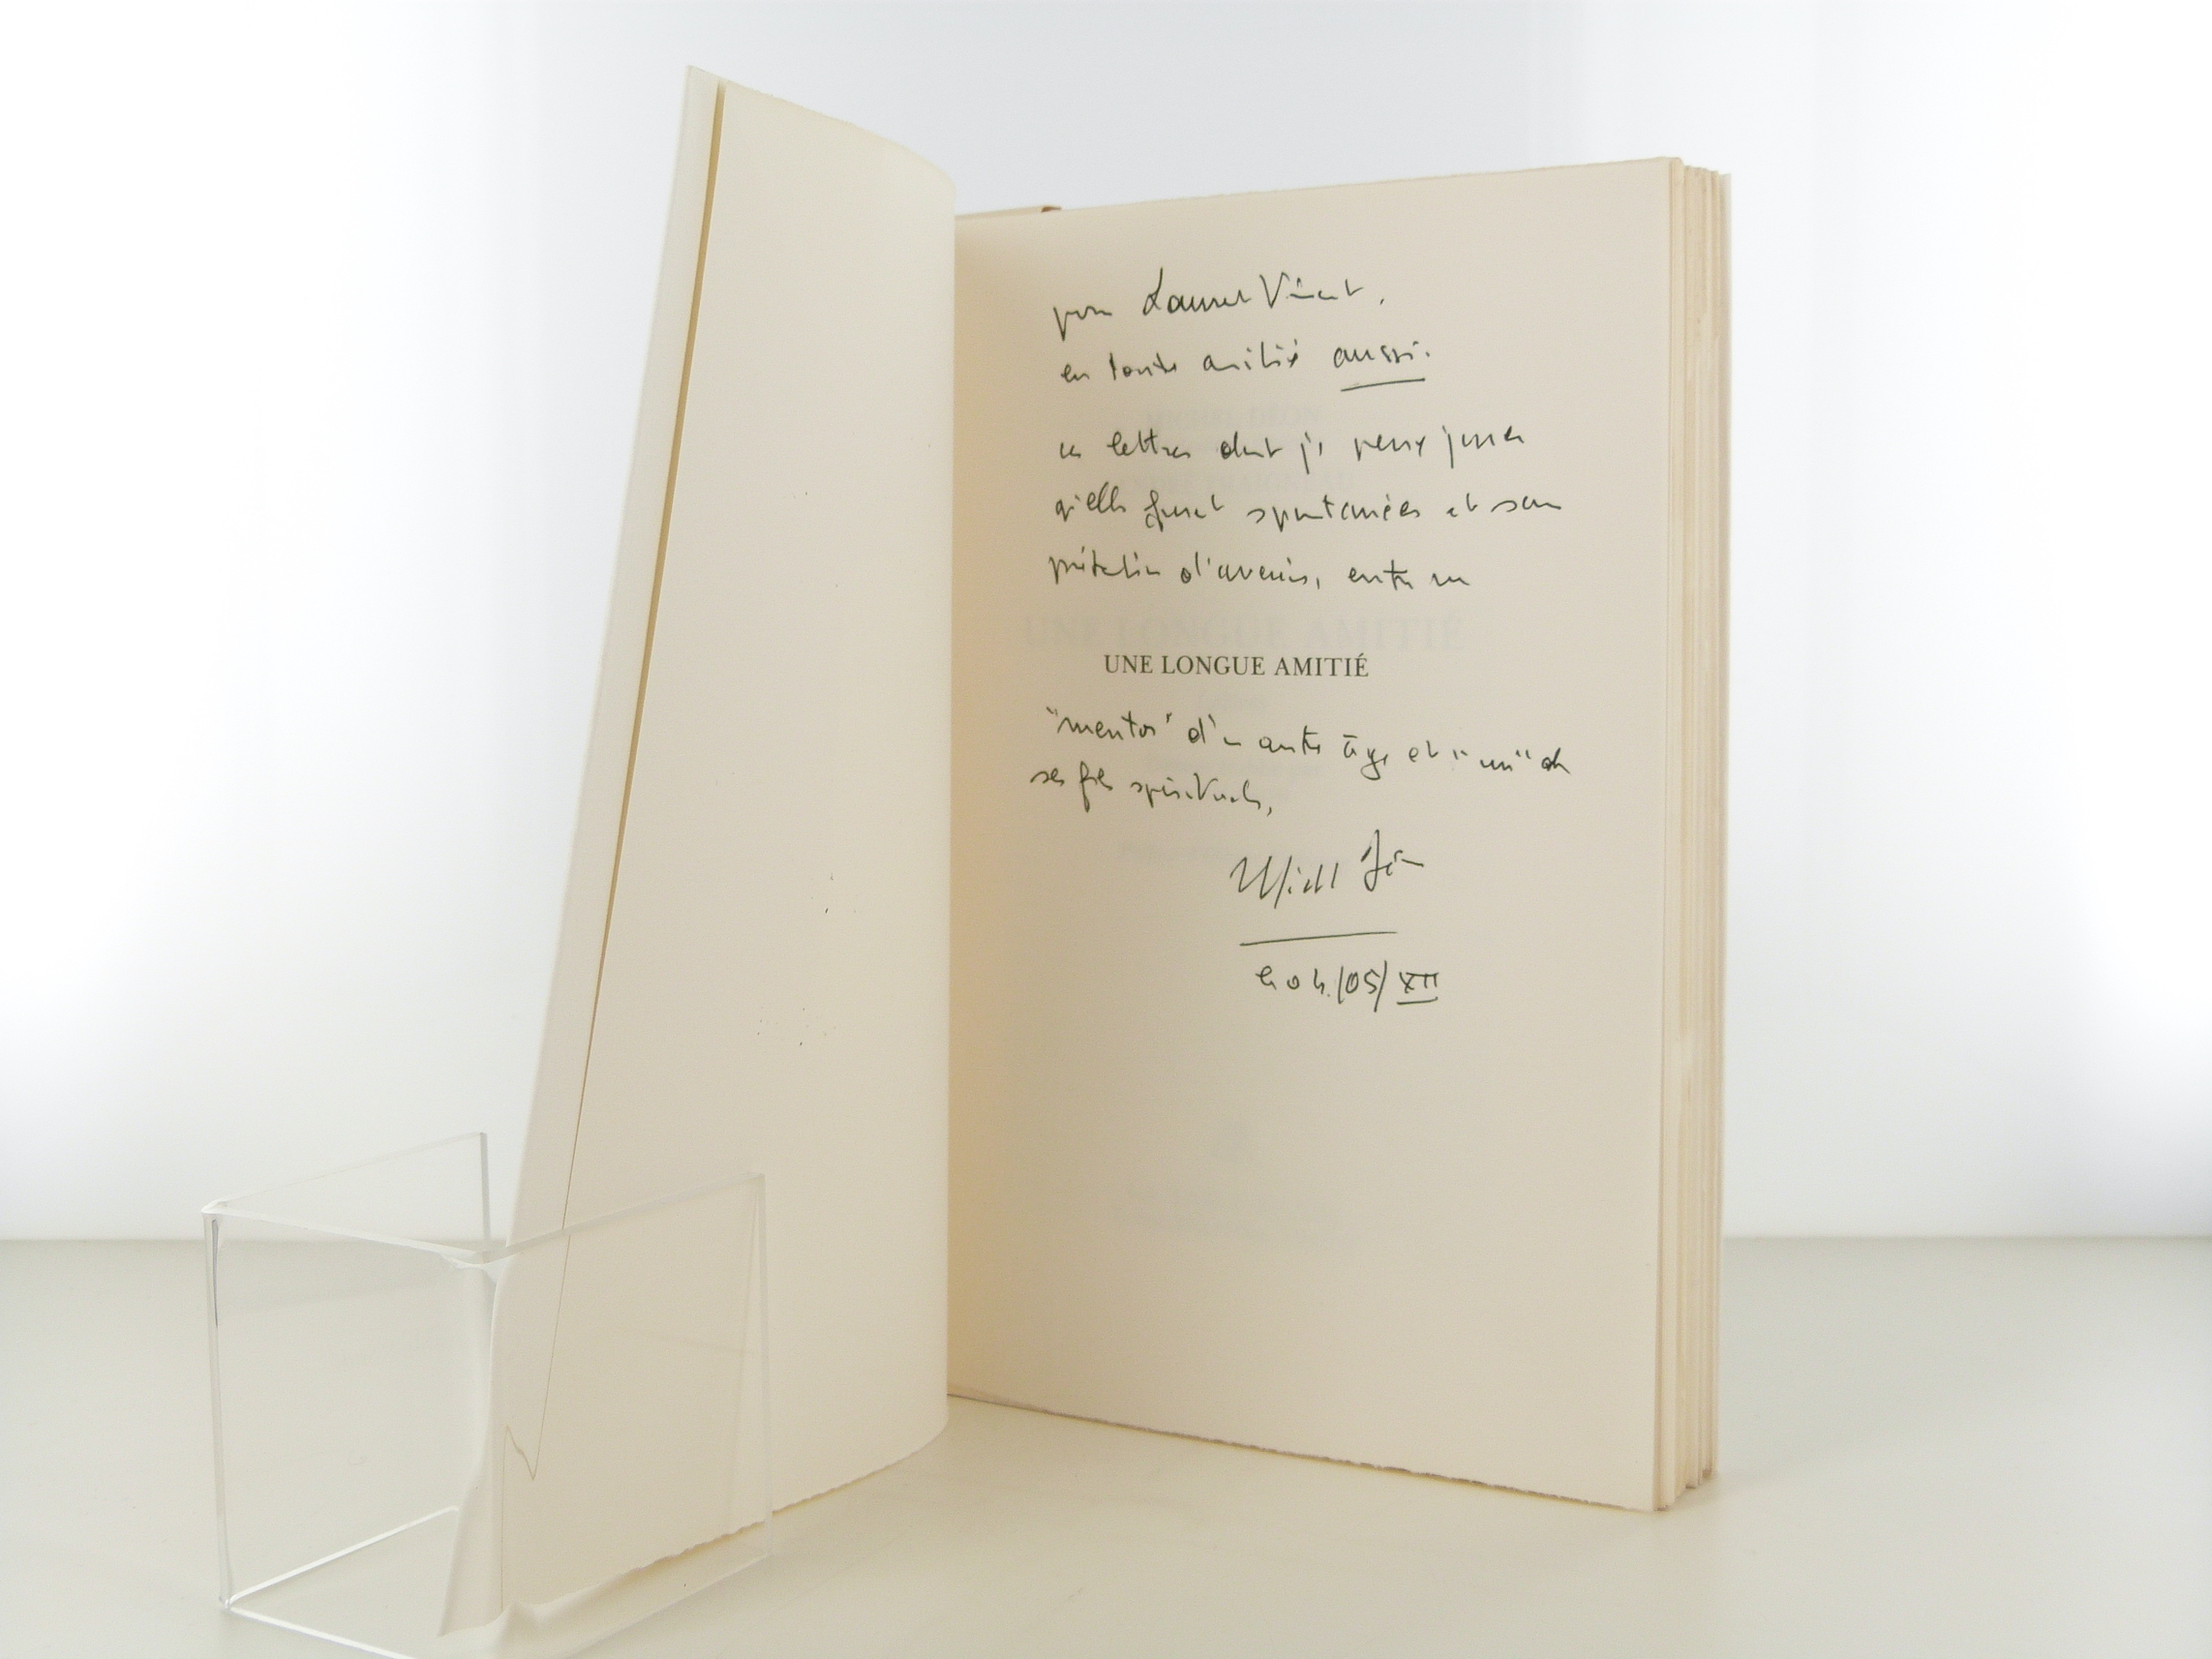 pour Laurent Vincent,
en toute amitié aussi.
ces lettres dont je peux jurer
qu'elles furent spontanées et sans
prétention d'avenir, entre un
UNE LONGUE AMITIÉ
"mentor" d'un autre âge et "un" de
ses fils spirituels,
Michel Déon
/05/XII